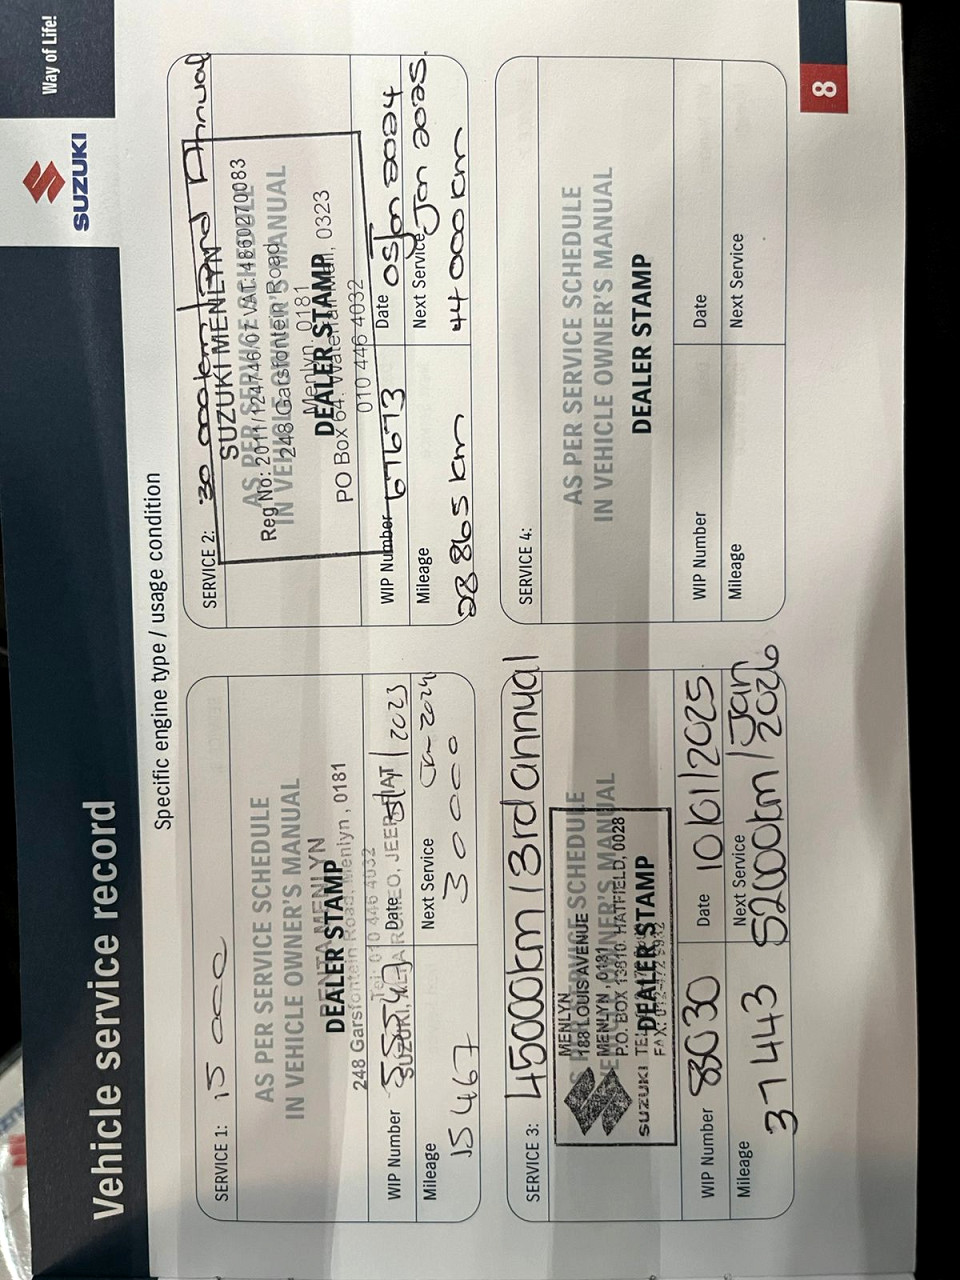 SUZUKI
Way of Life!
Vehicle service record
Specific engine type / usage condition
SERVICE 1: 15 000
AS PER SERVICE SCHEDULE
IN VEHICLE OWNER'S MANUAL
MENLYN
DEALER STAMP
248 Garsfontein Road, Menlyn, 0181
Tel: 010 446 4032
WIP Number
Date 2023
Mileage
15 467
Next Service Jan 2024
30000
SERVICE 2: 30 000km 2nd Annual
SUZUKI MENLYN
AS PER SERVICE SCHEDULE
Reg No: 2011/124746/07 VAT: 4860270083
IN VEHICLE OWNER'S MANUAL
248 Garsfontein Road
Menlyn, 0181
DEALER STAMP
PO Box 64, Waterkloof Mall, 0323
010 446 4032
WIP Number 67673
Date 05 Jan 2024
Mileage
28865 km
Next Service Jan 2025.
44 000 km
SERVICE 3: 45000km / 3rd annual
AS PER SERVICE SCHEDULE
IN VEHICLE OWNER'S MANUAL
MENLYN
188 LOUIS AVENUE
MENLYN, 0181
P.O. BOX 13810, HATFIELD, 0028
DEALER STAMP
SUZUKI
WIP Number 88030
Date 10/01/2025
Mileage
37443
Next Service Jan 2026
52000km /
SERVICE 4:
AS PER SERVICE SCHEDULE
IN VEHICLE OWNER'S MANUAL
DEALER STAMP
WIP Number
Date
Mileage
Next Service
8